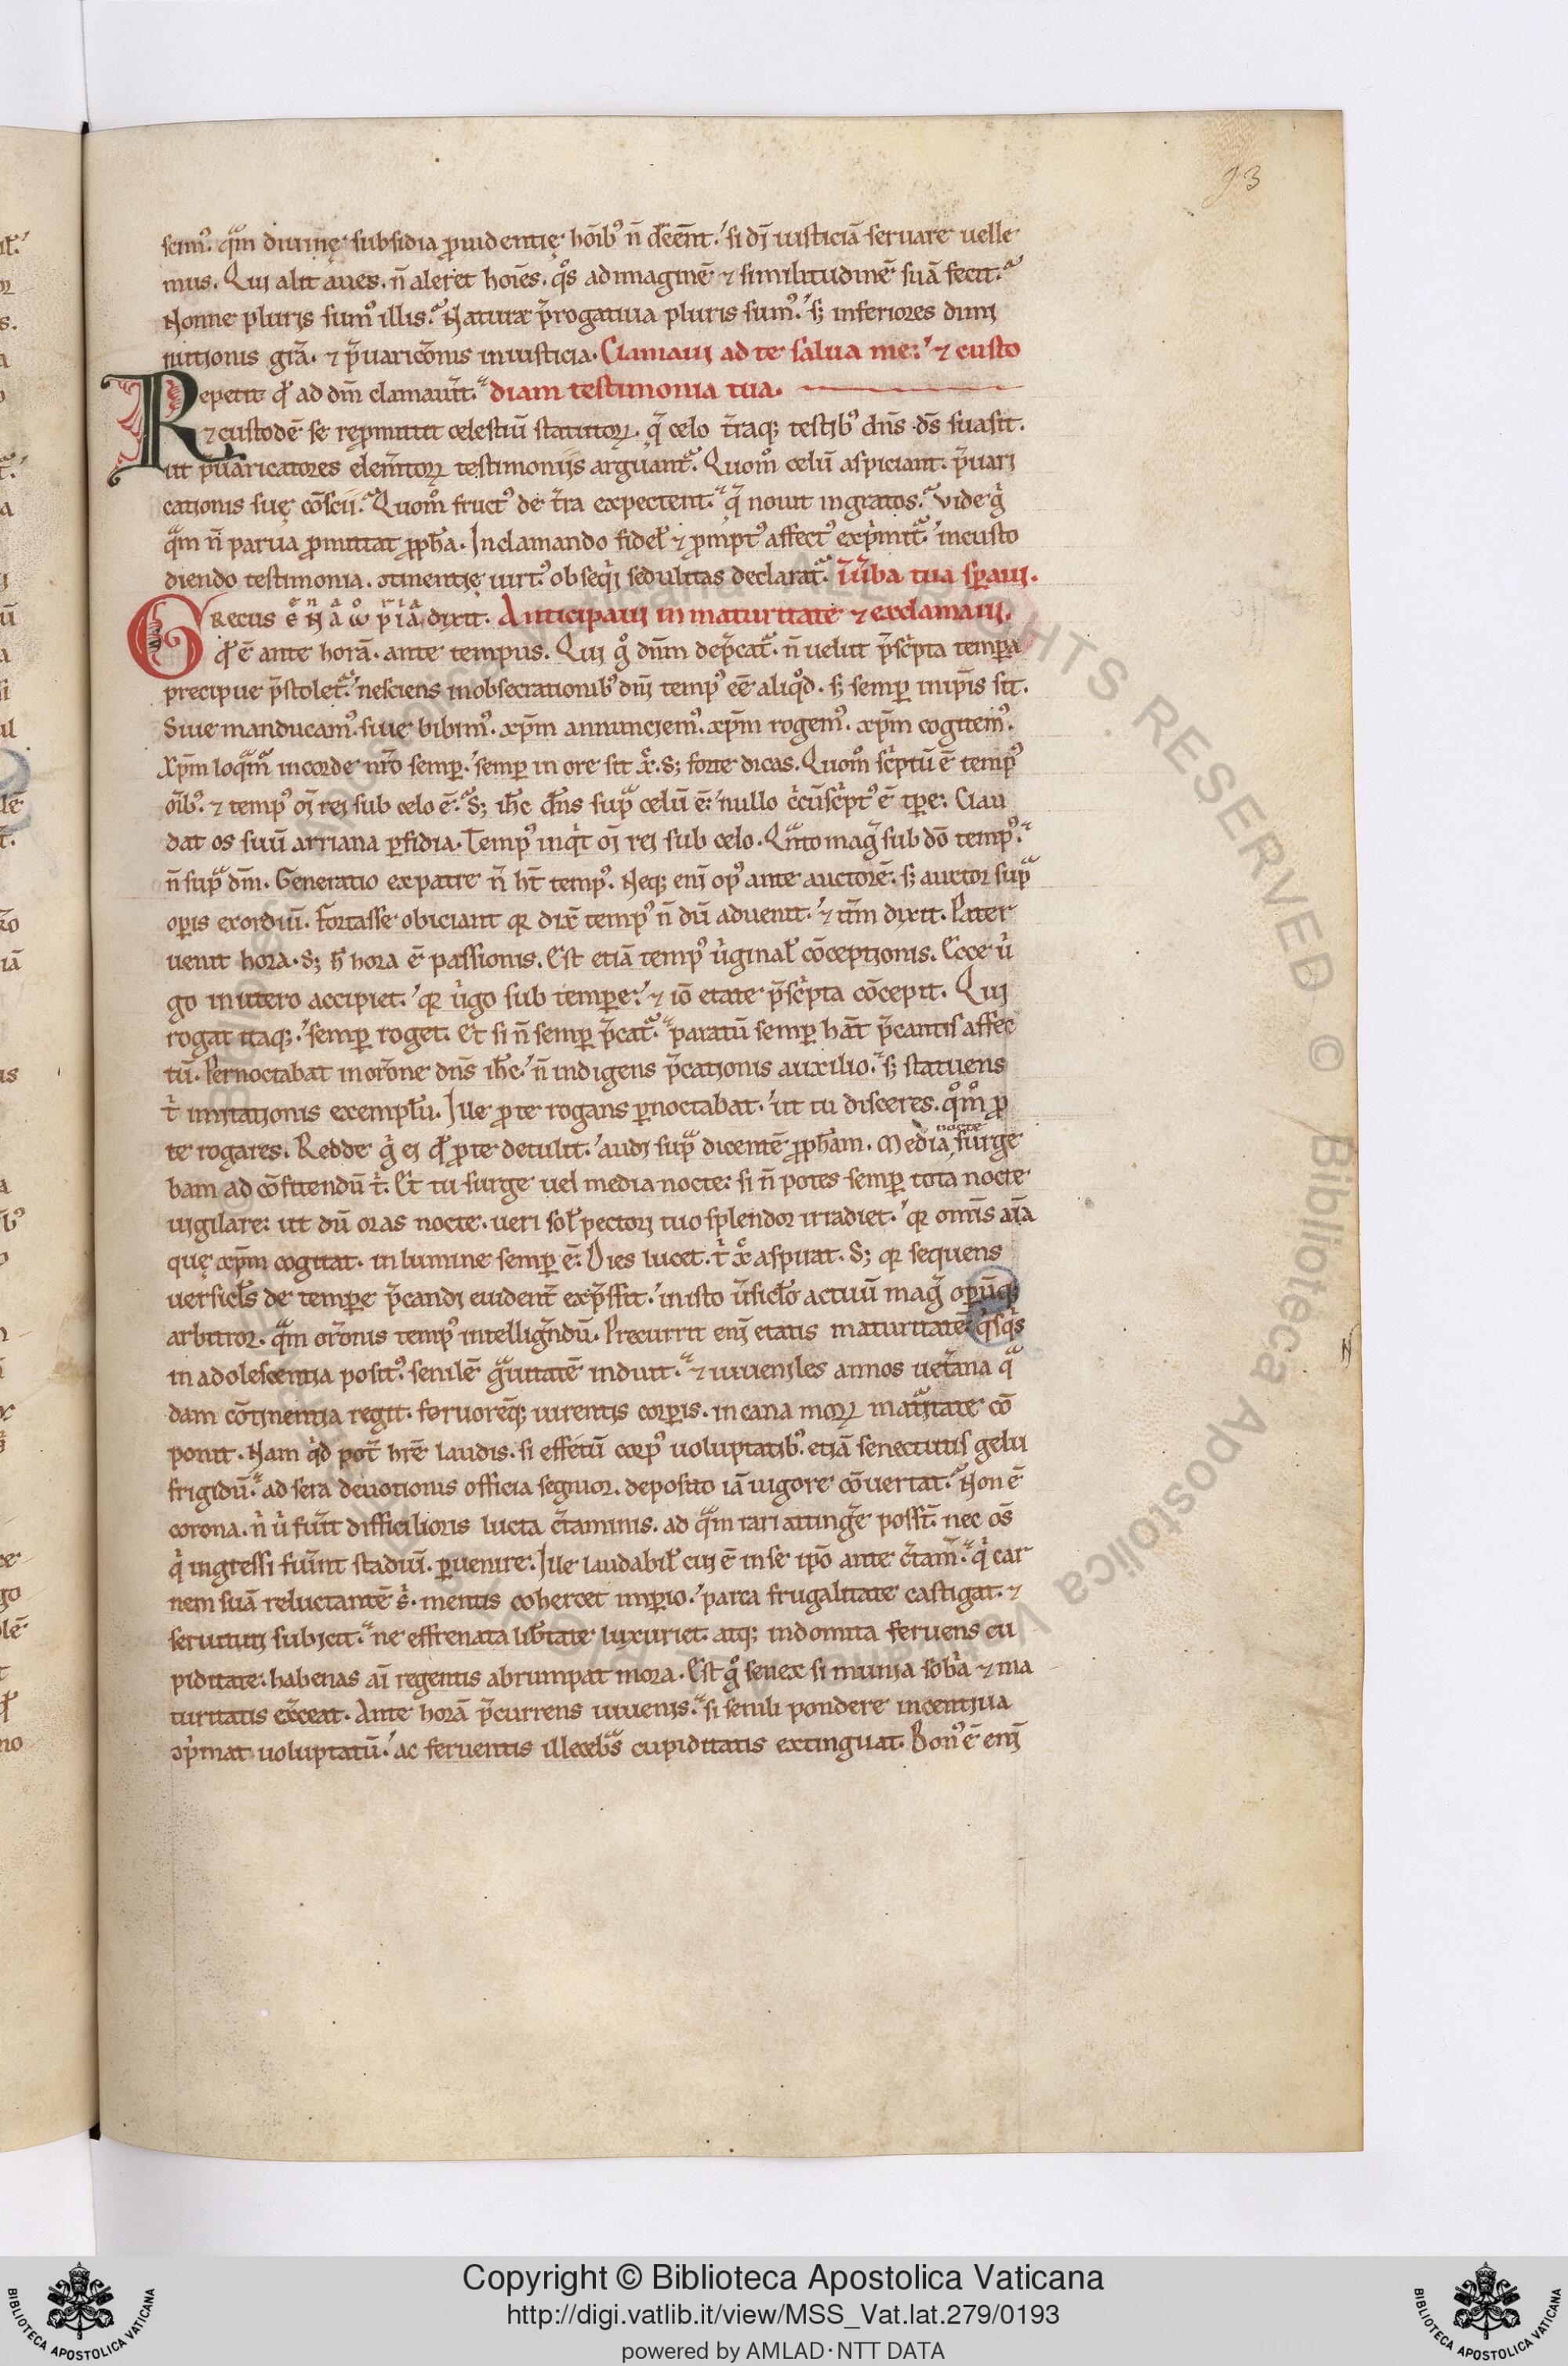 93
sem᷒. qᷓm diuinę subsidia ꝓuidentię hoı̄bꝰ n̄ de͞ēnt. si dı̄ iusticiā seruare uelle
mus. Qui alit aues. n̄ aleret hoı̄es. qͦs ad imaginē ⁊ similitudinē suā fecit.
Nonne pluris sumꝰ illis. Naturæ p̄rogatiua pluris sumꝰ. sꝫ inferiores dimi
nutionis gr̄a. ⁊ p̄uaricōnis iniusticia. Clamaui ad te salua me: ⁊ custo
Repetit qđ ad dm̄ clamauı̄t. diam testimonia tua.
⁊ custodē se reꝓmittit celestiū statutoꝝ. q̄ celo t̄raqꝫ testibꝰ dn̄s ds̄ suasit.
ut p̄uaricatores elem̄toꝝ testimoniis arguant᷑. Quomͦ celū aspiciant. p̄uari
cationis suę cōscii. Quomͦ fructꝰ de t̄ra expectent. q̄ nouit ingratos. Vide gͥ
qᷓm n̄ parua ꝓmittat ꝓph̄a. In clamando fidel̄ ⁊ ꝓmptꝰ affectꝰ expͥmit᷑. in custo
diendo testimonia. ↄtinentię uirt᷒. obsequii sedulitas declarat᷑. I uͥba tua sꝑaui.
Grecus ΕΝ ΑΩΡΙΑ dixit. Anticipaui in maturitate ⁊ exclamaui.
qđ ē ante horā. ante tempus. Qui gͦ dn̄m dep̄cat᷑. n̄ uelut p̄scͥpta temꝑa
precipue p̄stolet᷑. nesciens in obsecrationibꝰ diuı̄ tempꝰ eē aliqͦd. sꝫ semꝑ in ip̄is sit.
Siue manducamꝰ. siue bibimꝰ. xp̄m annunciemꝰ. xp̄m rogemꝰ. xp̄m cogitemꝰ.
Xp̄m loqᷓmͬ in corde nr̄o semꝑ. semꝑ in ore sit xͬ. Sꝫ forte dicas. Quomͦ scͥptū ē tempꝰ
oı̄bꝰ. ⁊ tempꝰ oı̄ rei sub celo ē. Sꝫ ih̄c dn̄s supᷓ celū ē: nullo cͥcūscͥptꝰ ē tꝑe: Clau
dat os suū arriana ꝑfidia. Tempꝰ inqͥt oı̄ rei sub celo. Qᷓnto magͥ sub dō tempꝰ.
n̄ supᷓ dm̄. Generatio ex patre n̄ ht̄ tempꝰ. Neqꝫ enı̄ opꝰ ante auctorē. sꝫ auctor supᷓ
oꝑis exordiū. Fortasse obiciant qr dix̄ tempꝰ n̄ dū aduenit. ⁊ tn̄ dixit. Pater
uenit hora. Sꝫ h̄ hora ē passionis. Est etiā tempꝰ uͥginal̄ cōceptionis. Ecce uͥ
go in utero accipiet. qr uͥgo sub temꝑe. ⁊ iō etate p̄scͥpta cōcepit. Qui
rogat itaqꝫ. semꝑ roget. Et si n̄ semꝑ p̄cat᷑. paratū semꝑ hāt p̄cantis affec
tū. Pernoctabat in or̄one dn̄s ih̄c. n̄ indigens p̄cationis auxilio. sꝫ statuens
tͥ imitationis exempl̄u. Ille ꝓ te rogans ꝑnoctabat. ut tu disceres. qͦmͦ ꝓ
te rogares. Redde gͥ ei qđ ꝓ te detulit. audi supᷓ dicentē ꝓph̄am. Media nocte surge
bam ad cōfitendū tͥ. Et tu surge uel media nocte: si n̄ potes semꝑ tota nocte
uigilare: ut dū oras nocte. ueri sol̄ pectori tuo splendor irradiet. qr omı̄s aı̄a
quę xp̄m cogitat. in lumine semꝑ ē. Dies lucet. tͥ xͬ aspirat. Sꝫ qr sequens
uersicl̄s de temꝑe p̄candi euident̄ exp̄ssit. in isto u̅sicl̄o actuū magͥ oꝑūqꝫ
arbitror. qᷓm or̄onis tempꝰ intelligēdū. Precurrit enı̄ etatis maturitatē. qͥsqͥs
in adolescentia positꝰ. senilē gᷓuitatē induit. ⁊ iuueniles annos uet̄ana qᷓ
dam cōtinentia regit. feruoreqꝫ uirentis corꝑis. in cana moꝝ matᷣitate cō
ponit. Nam qͥd pot̄ hr̄e laudis. si effetū corpꝰ uoluptatibꝰ. etiā senectutis gelu
frigidū. ad sera deuotionis officia segnior. deposito iā uigore cōuertat. Non ē
corona. nͥ uͥ fuı̄t difficilioris lucta c̄taminis. ad qᷓm rari attinḡe poss̄t. nec os̄
qͥ ingressi fuı̄nt stadiū. ꝑuenire. Ille laudabil̄ cui ē in se ip̄o ante c̄tam̄. qͥ car
nem suā reluctantē sͥ. mentis cohercet imꝑio. parca frugalitate castigat. ⁊
seruituti subicit. ne effrenata lib̄tate luxuriet. atqꝫ indomita feruens cu
piditate: habenas aı̄ regentis abrumpat mora. Est gͦ senex si munia sobͥa ⁊ ma
turitatis ex̄ceat. Ante horā p̄currens iuuenis. si senili pondere incentiua
ↄpͥmat uoluptatū. ac feruentis illecebᷓs cupiditatis extinguat. Bonꝰ ē enı̄
Copyright © Biblioteca Apostolica Vaticana
http://digi.vatlib.it/view/MSS_Vat.lat.279/0193
powered by AMLAD·NTT DATA